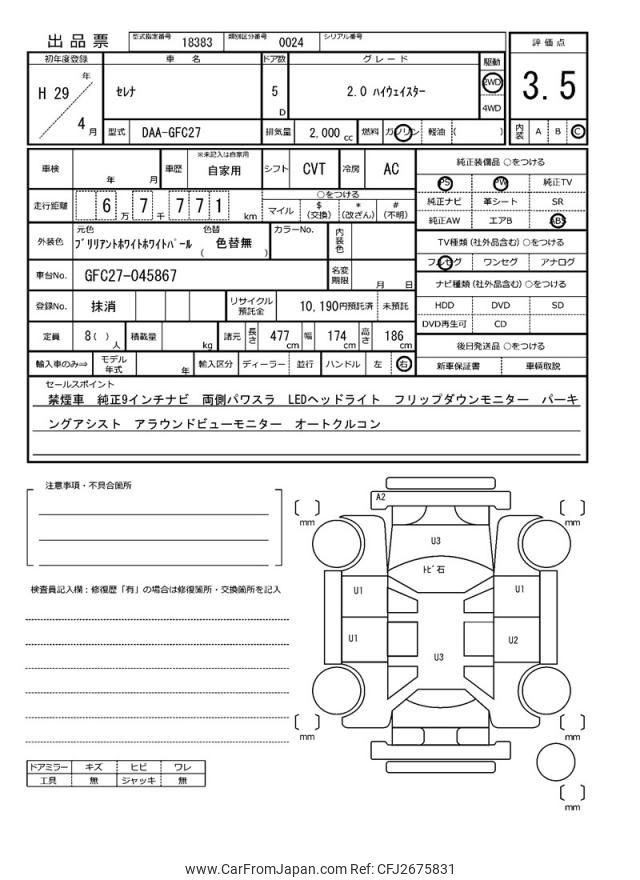 出品票 型式指定番号 18383 類別区分番号 0024 シリアル番号
評価点
3.5
内装 A B C
初年度登録 車名 ドア数 グレード 駆動
H 29 年 4 月
セレナ 5 D 2.0 ハイウェイスター 2WD 4WD
型式 DAA-GFC27 排気量 2,000 cc 燃料 ガソリン 軽油 ( )
車検 年 月 車歴 ※未記入は自家用 自家用 シフト CVT 冷房 AC
走行距離 6 万 7 千 7 7 1 km
○をつける
マイル $ (交換) * (改ざん) # (不明)
外装色 元色 ブリリアントホワイトホワイトパール 色替 色替無 ( ) カラーNo. 内装色
車台No. GFC27-045867 名変期限 月 日
登録No. 抹消 リサイクル預託金 10,190円預託済 未預託
定員 8( ) 人 積載量 kg 諸元 長さ 477 cm 幅 174 cm 高さ 186 cm
輸入車のみ⇒ モデル年式 年 輸入区分 ディーラー 並行 ハンドル 左 右
純正装備品 ○をつける
PS PW 純正TV
純正ナビ 革シート SR
純正AW エアB ABS
TV種類 (社外品含む) ○をつける
フルセグ ワンセグ アナログ
ナビ種類 (社外品含む) ○をつける
HDD DVD SD
DVD再生可 CD
後日発送品 ○をつける
新車保証書 車輌取説
セールスポイント
禁煙車 純正9インチナビ 両側パワスラ LEDヘッドライト フリップダウンモニター パーキ
ングアシスト アラウンドビューモニター オートクルコン
注意事項・不具合箇所
検査員記入欄:修復歴「有」の場合は修復箇所・交換箇所を記入
ドアミラー キズ ヒビ ワレ
工具 無 ジャッキ 無
A2
mm
mm
U3
トビ石
U1
U1
U1
U2
U3
mm
mm
mm
www.CarFromJapan.com Ref: CFJ2675831